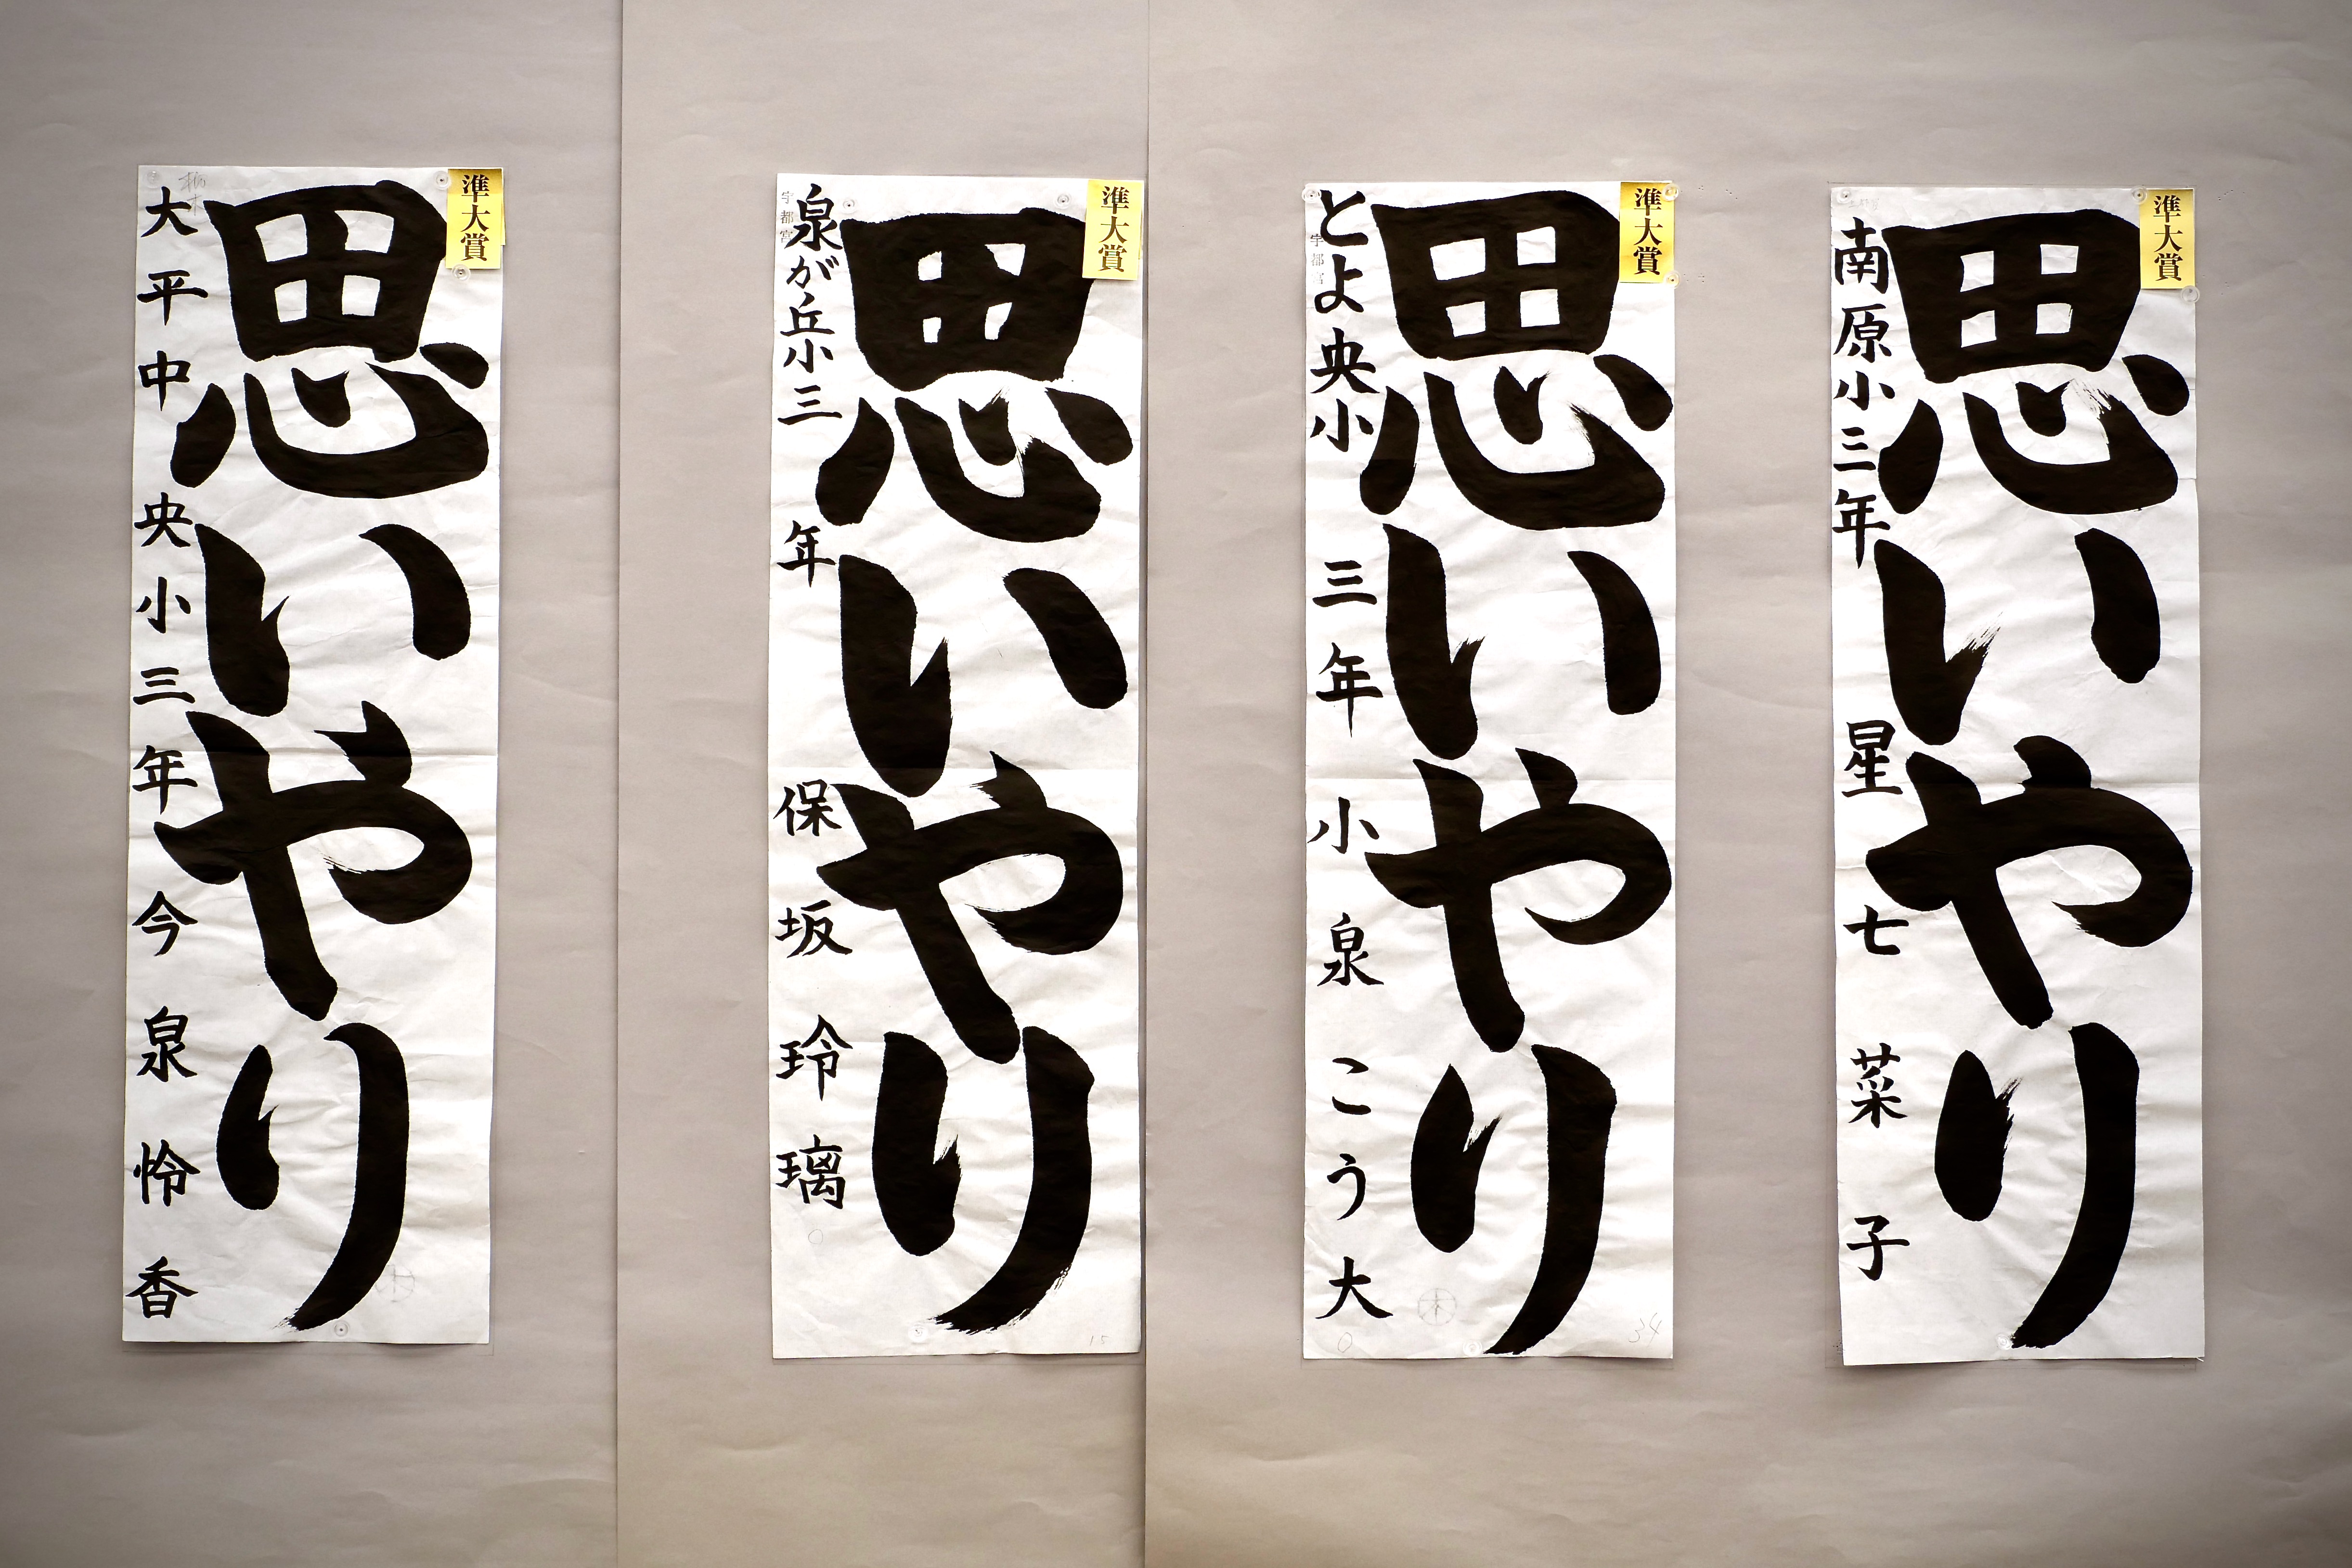 準大賞
思いやり
大平中央小三年 今泉怜香
準大賞
思いやり
泉が丘小三年 保坂玲璃
宇都宮
準大賞
思いやり
とよ央小三年 小泉こう大
宇都宮
34
準大賞
思いやり
南原小三年 星七菜子